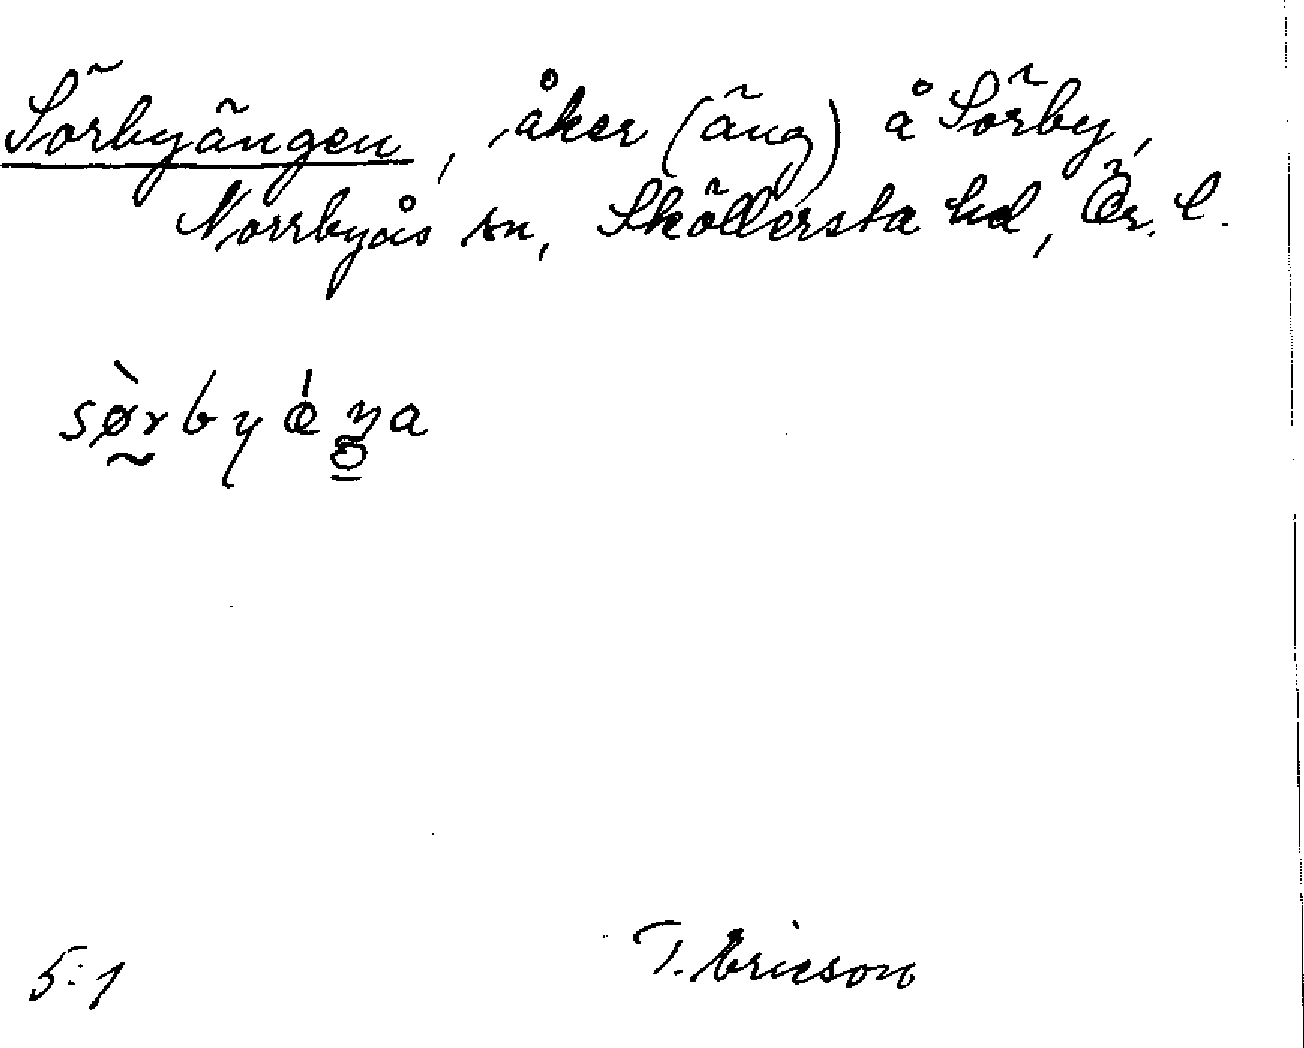 Sörbyängen, åker (äng) å Sörby,
Norrbyås sn, Sköllersta hd, Ör. l.
sø̀rbyǽŋa
5:1
T. Ericson